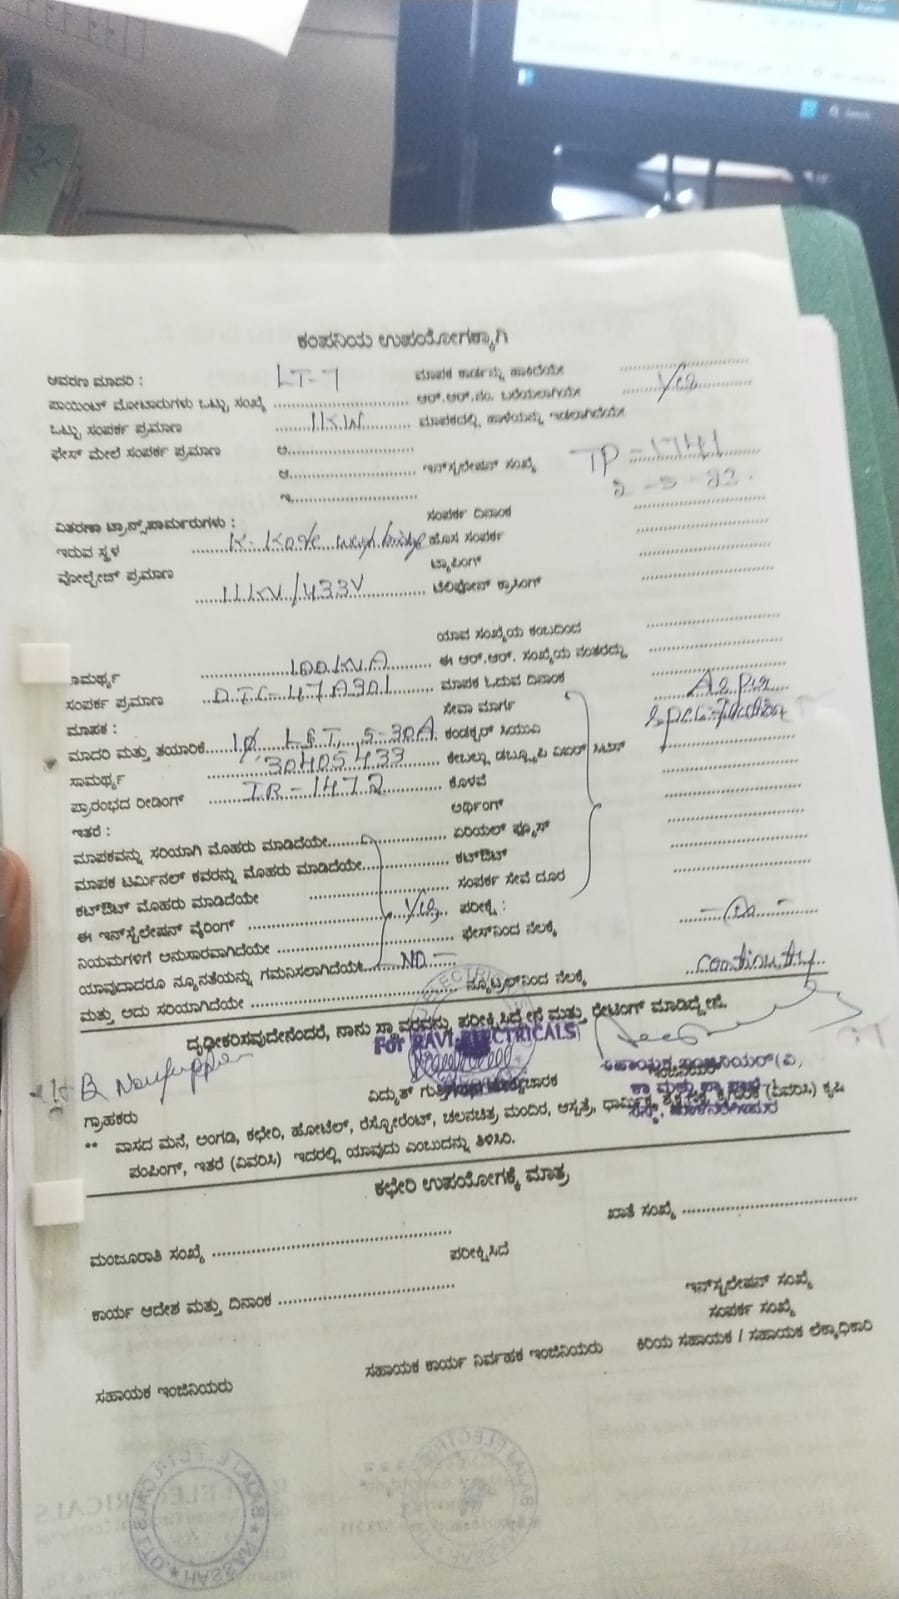 ಕಂಪನಿಯ ಉಪಯೋಗಕ್ಕಾಗಿ
ಆವರಣ ಮಾದರಿ : LT-7 ಮಾಪಕ ಕಾರ್ಡನ್ನು ಹಾಕಿದೆಯೇ
ಪಾಯಿಂಟ್ ಮೋಟಾರುಗಳು ಒಟ್ಟು ಸಂಖ್ಯೆ ಆರ್.ಆರ್.ನಂ. ಬರೆಯಲಾಗಿದೆಯೇ Yes
ಒಟ್ಟು ಸಂಪರ್ಕ ಪ್ರಮಾಣ 11KW ಮಾಪಕದಲ್ಲಿ
ಫೇಸ್ ಮೇಲೆ ಸಂಪರ್ಕ ಪ್ರಮಾಣ ಅ.
ಆ. ಇನ್‌ಸ್ಟಲೇಷನ್ ಸಂಖ್ಯೆ TP-1741
ಇ. 2-5-22.
ವಿತರಣಾ ಟ್ರಾನ್ಸ್‌ಫಾರ್ಮರುಗಳು : ಸಂಪರ್ಕ ದಿನಾಂಕ
ಇರುವ ಸ್ಥಳ ಹೊಸ ಸಂಪರ್ಕ
ವೋಲ್ಟೇಜ್ ಪ್ರಮಾಣ ಟ್ಯಾಪಿಂಗ್
11KV/433V ಟೆಲಿಫೋನ್ ಕ್ರಾಸಿಂಗ್
ಯಾವ ಸಂಖ್ಯೆಯ ಕಂಬದಿಂದ
ಸಾಮರ್ಥ್ಯ 100KVA ಈ ಆರ್.ಆರ್. ಸಂಖ್ಯೆಯ ನಂತರದ್ದು
ಸಂಪರ್ಕ ಪ್ರಮಾಣ DTC-47A301 ಮಾಪಕ ಓದುವ ದಿನಾಂಕ
ಮಾಪಕ : ಸೇವಾ ಮಾರ್ಗ As per
ಮಾದರಿ ಮತ್ತು ತಯಾರಿಕೆ 1Ø L&T, 5-30A ಕಂಡಕ್ಟರ್ ಸಿಯುಎ Specification
ಸಾಮರ್ಥ್ಯ 30405433 ಕೇಬಲ್ಲು
ಪ್ರಾರಂಭದ ರೀಡಿಂಗ್ IR-1472 ಕೊಳವೆ
ಇತರೆ : ಅರ್ಥಿಂಗ್
ಮಾಪಕವನ್ನು ಸರಿಯಾಗಿ ಮೊಹರು ಮಾಡಿದೆಯೇ ಏರಿಯಲ್ ಫ್ಯೂಸ್
ಮಾಪಕ ಟರ್ಮಿನಲ್ ಕವರನ್ನು ಮೊಹರು ಮಾಡಿದೆಯೇ ಕಟ್‌ಔಟ್
ಕಟ್‌ಔಟ್ ಮೊಹರು ಮಾಡಿದೆಯೇ ಸಂಪರ್ಕ ಸೇವೆ ದೂರ
ಈ ಇನ್‌ಸ್ಟಲೇಷನ್ ವೈರಿಂಗ್ Yes ಪರೀಕ್ಷೆ :
ನಿಯಮಗಳಿಗೆ ಅನುಸಾರವಾಗಿದೆಯೇ ಫೇಸ್‌ನಿಂದ ನೆಲಕ್ಕೆ
ಯಾವುದಾದರೂ ನ್ಯೂನತೆಯನ್ನು ಗಮನಿಸಲಾಗಿದೆಯೇ NO
ಮತ್ತು ಅದು ಸರಿಯಾಗಿದೆಯೇ ನ್ಯೂಟ್ರಲ್‌ನಿಂದ ನೆಲಕ್ಕೆ continuty
ದೃಢೀಕರಿಸುವುದೇನೆಂದರೆ, ನಾನು ಸ್ಥಾವರವನ್ನು ಪರೀಕ್ಷಿಸಿದ್ದೇನೆ ಮತ್ತು ರೇಟಿಂಗ್ ಮಾಡಿದ್ದೇನೆ.
For RAVI ELECTRICALS
ವಿದ್ಯುತ್
ಗ್ರಾಹಕರು
** ವಾಸದ ಮನೆ, ಅಂಗಡಿ, ಕಛೇರಿ, ಹೋಟೆಲ್, ರೆಸ್ಟೋರೆಂಟ್, ಚಲನಚಿತ್ರ ಮಂದಿರ, ಆಸ್ಪತ್ರೆ, ಧಾರ್ಮಿಕ, (ವಿವರಿಸಿ) ಕೃಷಿ
ಪಂಪಿಂಗ್, ಇತರೆ (ವಿವರಿಸಿ) ಇದರಲ್ಲಿ ಯಾವುದು ಎಂಬುದನ್ನು ತಿಳಿಸಿರಿ.
ಕಛೇರಿ ಉಪಯೋಗಕ್ಕೆ ಮಾತ್ರ
ಮಂಜೂರಾತಿ ಸಂಖ್ಯೆ ಖಾತೆ ಸಂಖ್ಯೆ
ಪರೀಕ್ಷಿಸಿದೆ
ಕಾರ್ಯ ಆದೇಶ ಮತ್ತು ದಿನಾಂಕ ಇನ್‌ಸ್ಟಲೇಷನ್ ಸಂಖ್ಯೆ
ಸಂಪರ್ಕ ಸಂಖ್ಯೆ
ಸಹಾಯಕ ಇಂಜಿನಿಯರು ಸಹಾಯಕ ಕಾರ್ಯ ನಿರ್ವಹಕ ಇಂಜಿನಿಯರು ಕಿರಿಯ ಸಹಾಯಕ / ಸಹಾಯಕ ಲೆಕ್ಕಾಧಿಕಾರಿ